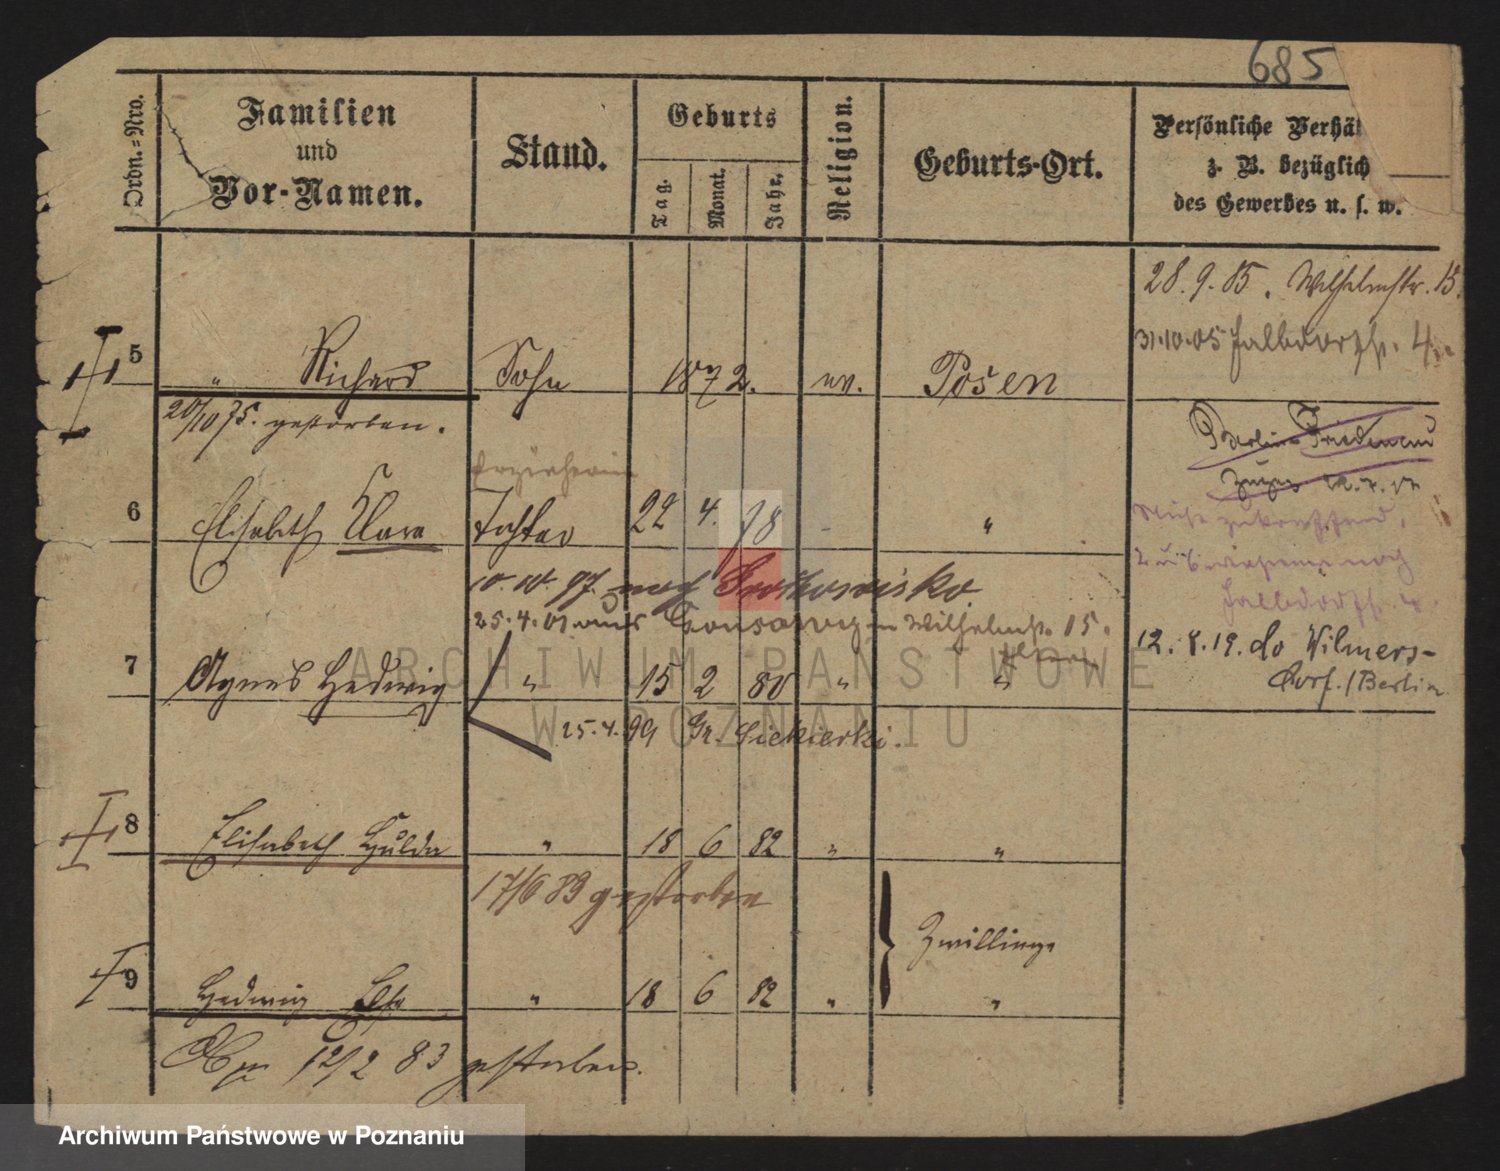 685
Ordn.=Nro.
Familien
und
Vor-Namen.
Stand.
Geburts
Tag.
Monat.
Jahr.
Religion.
Geburts-Ort.
Persönliche Verhäl
z. B. bezüglich
des Gewerbes u. s. w.
28.9.85. Wilhelmstr. 15.
31.10.05 4.
5 " Richard Sohn 1872. ev. Posen
20/10 75. gestorben.
Berlin-Friedenau
Erzieherin
6 Elisabeth Klara Tochter 22 4. 78 "
10. 10. 97. nach
25.4.01 Wilhelmstr. 15.
7 Agnes Hedwig " 15 2 80 " "
12.8.19. do Wilmers-
dorf./Berlin
25.4.99 Gr. Siekierki.
8 Elisabeth Hulda " 18 6 82 " "
17/6 83 gestorben
Zwillinge
9 Hedwig Else " 18 6 82 " "
12/2 83 gestorben.
ARCHIWUM PAŃSTWOWE
W POZNANIU
Archiwum Państwowe w Poznaniu